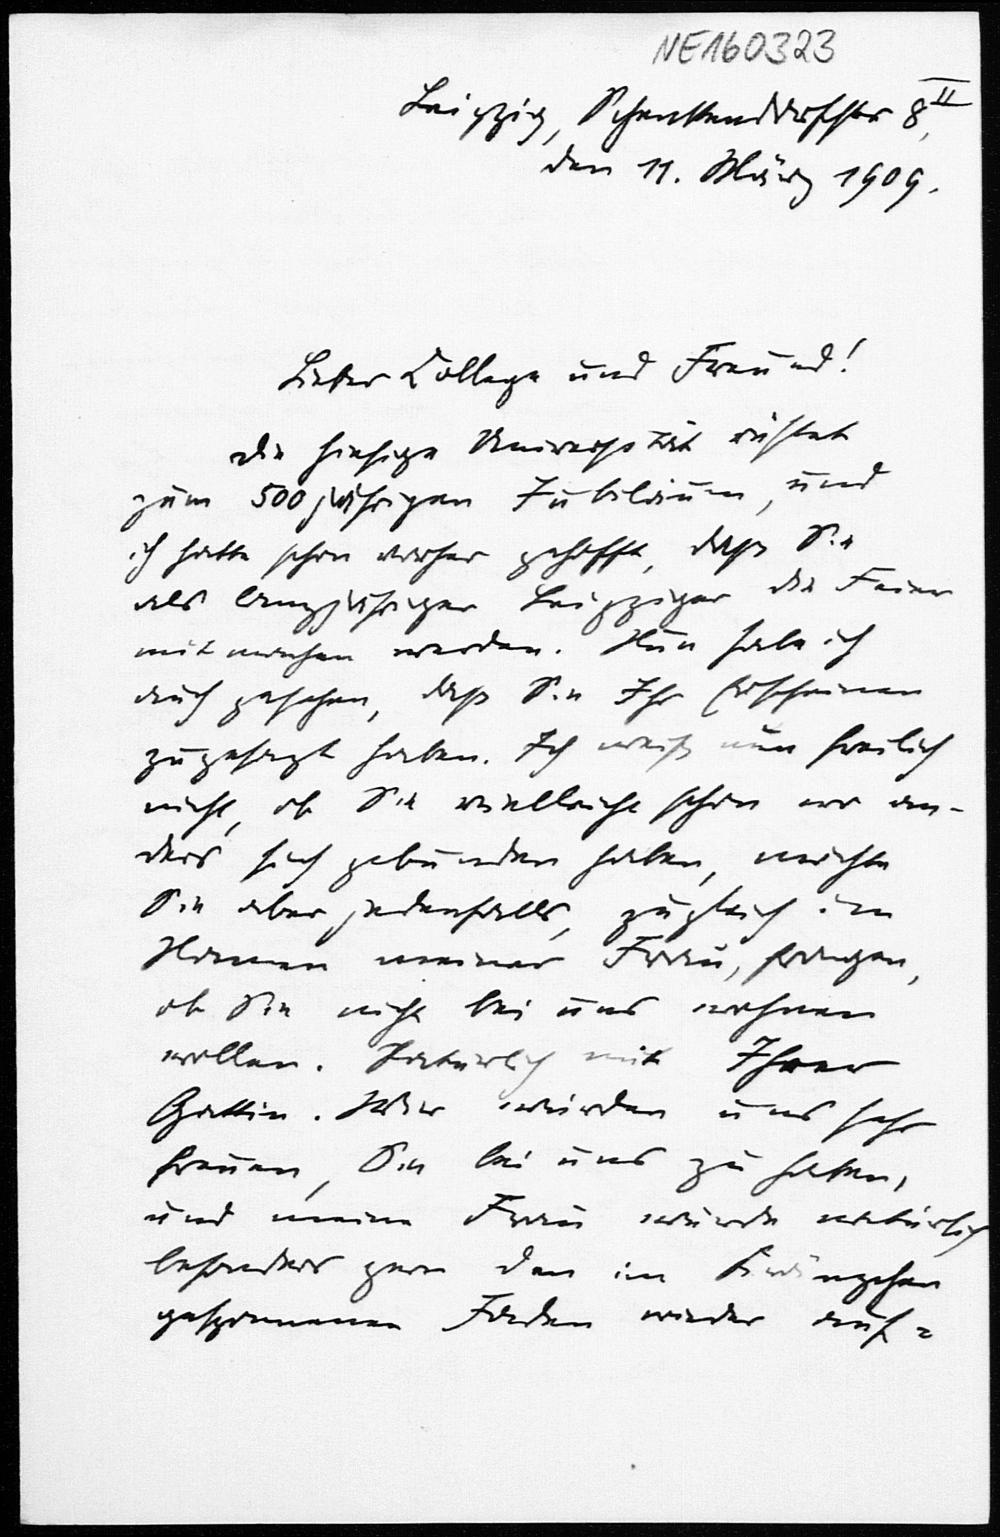 NE160323
Leipzig, Schenkendorfstr 8 II,
den 11. März 1909.
Lieber College und Freund!
die hiesige Universität rüstet
zum 500jährigen Jubiläum, und
ich hatte schon vorher gehofft, daß Sie
als langjähriger Leipziger die Feier
mit machen werden. Nun habe ich
auch gesehen, daß Sie Ihr Erscheinen
zugesagt haben. Ich weiß nun freilich
nicht, ob Sie vielleicht schon wo an-
ders sich gebunden haben, möchte
Sie aber jedenfalls, zugleich im
Namen meiner Frau, fragen,
ob Sie nicht bei uns wohnen
wollen. Natürlich mit Ihrer
Gattin. Wir würden uns sehr
freuen, Sie bei uns zu haben,
und meine Frau würde natürlich
besonders gern den im Kränzchen
gesponnenen Faden wieder auf-